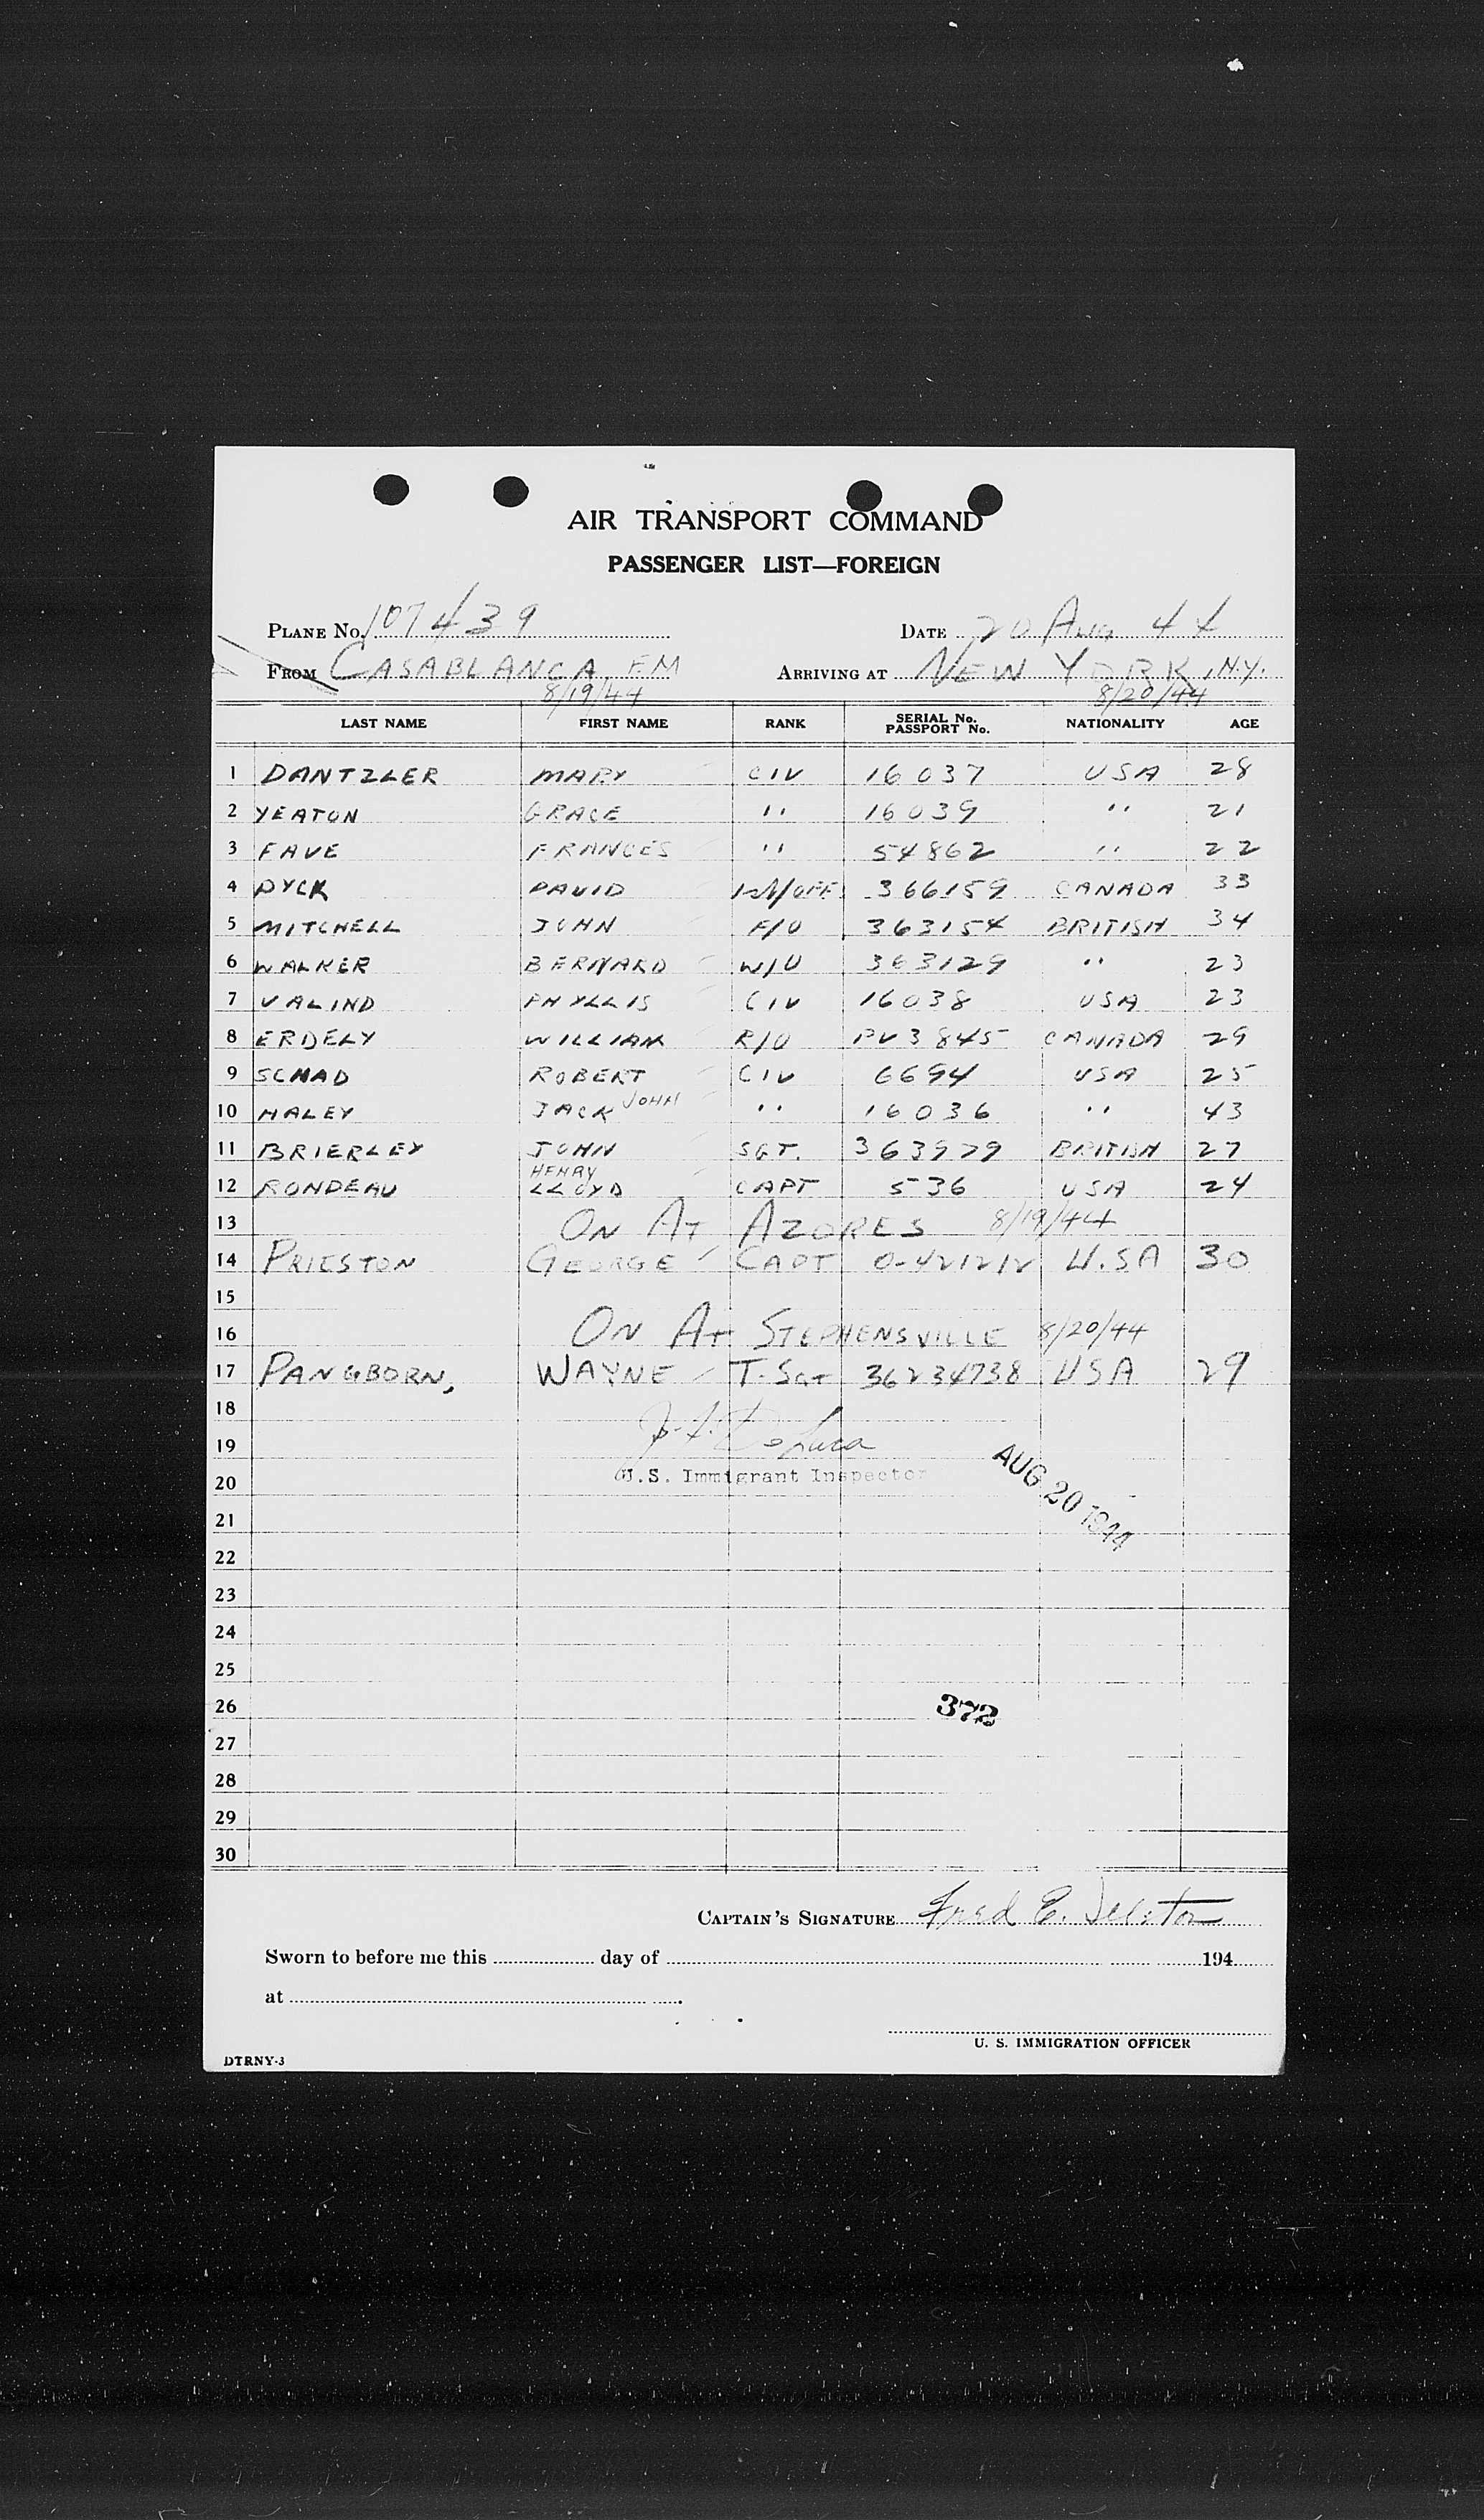 AIR TRANSPORT COMMAND
PASSENGER LIST—FOREIGN
PLANE NO. 107439 DATE 20 AUG 44
FROM CASABLANCA F.M ARRIVING AT NEW YORK, N.Y.
8/19/44 8/20/44
LAST NAME FIRST NAME RANK SERIAL No. PASSPORT No. NATIONALITY AGE
1 DANTZLER MARY CIV 16037 USA 28
2 YEATON GRACE " 16039 " 21
3 FAVE FRANCES " 54862 " 22
4 DYCK DAVID /OFF 366159 CANADA 33
5 MITCHELL JOHN F/O 363154 BRITISH 34
6 WALKER BERNARD W/O 363129 " 23
7 VALIND PHYLLIS CIV 16038 USA 23
8 ERDELY WILLIAM R/O PV3845 CANADA 29
9 SCHAD ROBERT CIV 6694 USA 25
10 HALEY JACK JOHN " 16036 " 43
11 BRIERLEY JOHN SGT. 363979 BRITISH 27
12 RONDEAU HENRY LLOYD CAPT 536 USA 24
13 ON AT AZORES 8/19/44
14 PRIESTON GEORGE CAPT O-421212 U.SA 30
15
16 ON AT STEPHENSVILLE 8/20/44
17 PANGBORN, WAYNE T-SGT 36234738 USA 29
18
19
20 U.S. Immigrant Inspector AUG 20 1944
21
22
23
24
25
26 372
27
28
29
30
CAPTAIN'S SIGNATURE Fred E.
Sworn to before me this day of 194
at
U. S. IMMIGRATION OFFICER
DTRNY-3